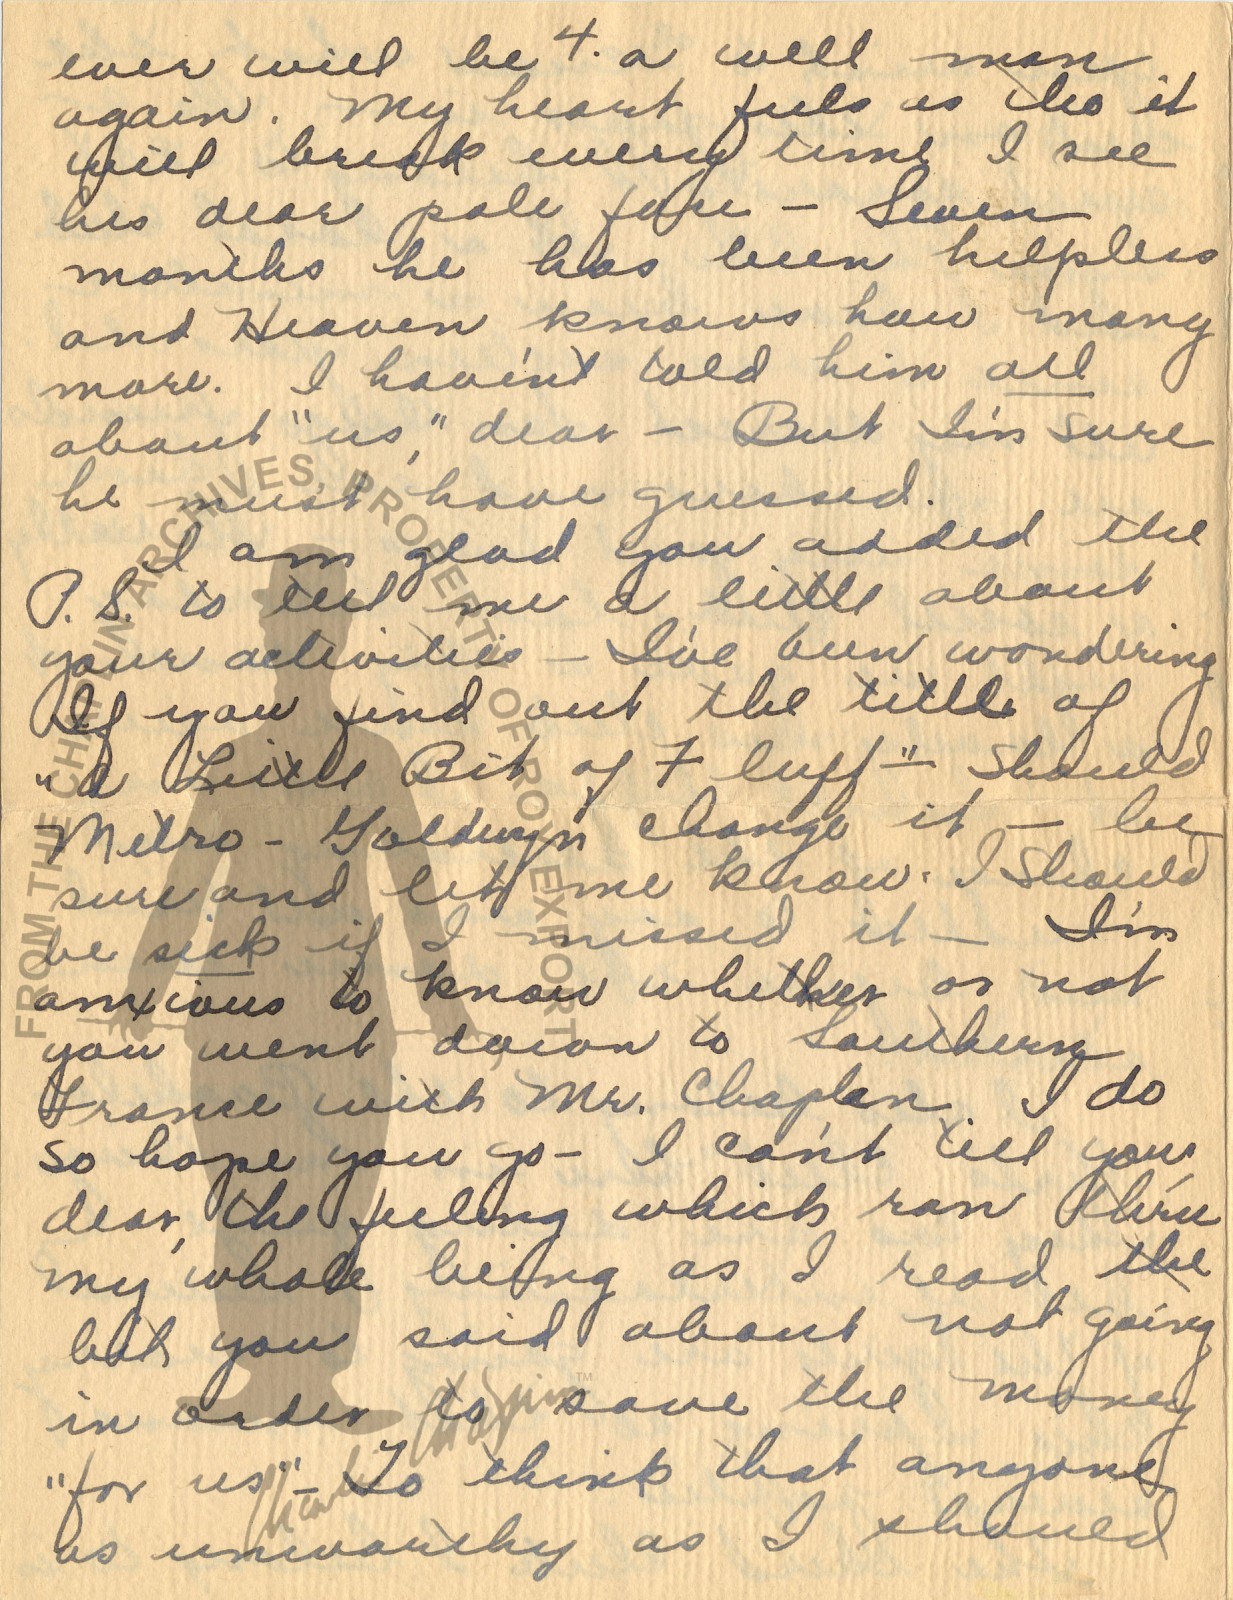 4.
ever will be a well man
again. My heart feels as tho it
will break every time I see
his dear pale face — Seven
months he has been helpless
and Heaven knows how many
more. I haven't told him all
about "us," dear — But I'm sure
he must have guessed.
I am glad you added the
P.S. to tell me a little about
your activities — I've been wondering
If you find out the title of
"a Little Bit of Fluff" — should
Metro-Goldwyn change it — be
sure and let me know. I should
be sick if I missed it — I'm
anxious to know whether or not
you went down to Southern
France with Mr. Chaplin. I do
so hope you go — I can't tell you,
dear, the feeling which ran thru
my whole being as I read the
bit you said about not going
in order to save the money
"for us" — To think that anyone
as unworthy as I should
FROM THE CHAPLIN ARCHIVES, PROPERTY OF ROY EXPORT
Charlie Chaplin™